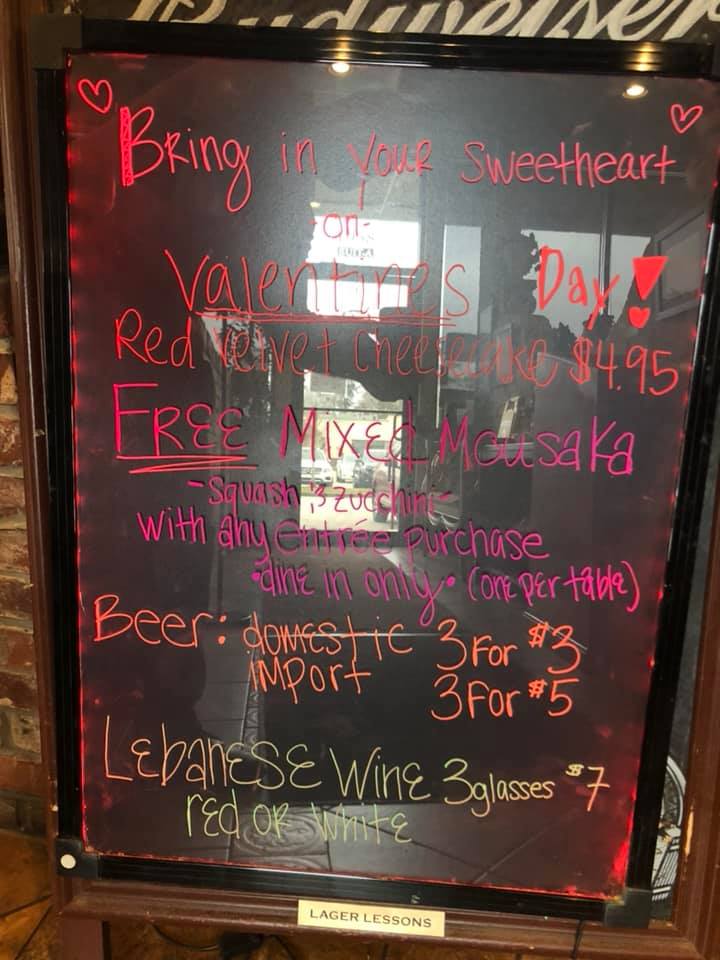 Budweiser
Bring in your Sweetheart
-on-
Valentines Day!
Red Velvet Cheesecake $4.95
FREE Mixed Mousaka
-Squash & Zucchini-
with any entrée purchase
•dine in only• (one per table)
Beer: domestic 3 For $3
import 3 For $5
Lebanese Wine 3 glasses $7
red or white
LAGER LESSONS